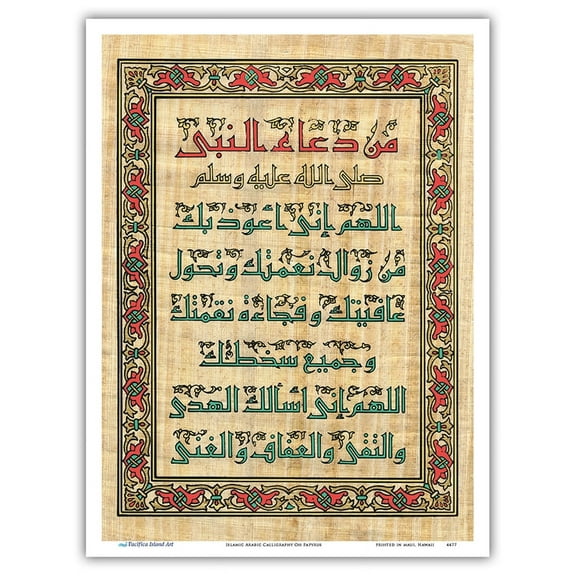 من دعاء النبى
صلى الله عليه وسلم
اللهم إنى أعوذ بك
من زوال نعمتك وتحول
عافيتك وفجاءة نقمتك
وجميع سخطك
اللهم إنى أسألك الهدى
والتقى والعفاف والغنى
Pacifica Island Art
Islamic Arabic Calligraphy On Papyrus
Printed in Maui, Hawaii
4477